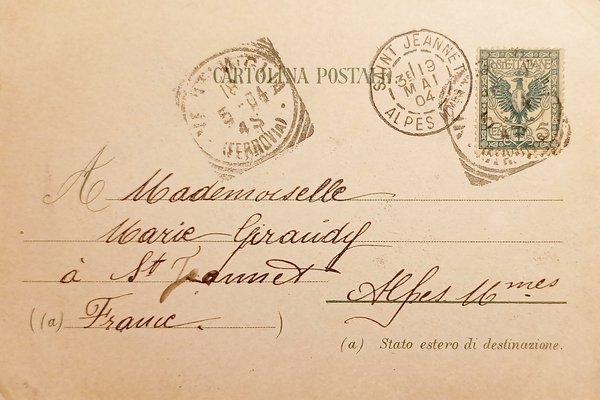 CARTOLINA POSTALE
VENTIMIGLIA
04
(FERROVIA)
SAINT JEANNET
3E/19
MAI
04
ALPES Mmes
POSTE ITALIANE
5
A Mademoiselle
Marie Giraudy
à St Jeannet
Alpes Mmes
(a) France. )
(a) Stato estero di destinazione.